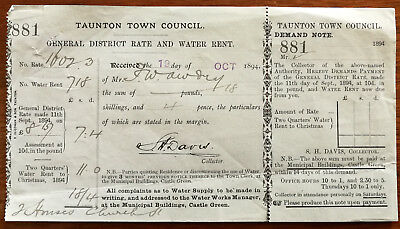 881
TAUNTON TOWN COUNCIL.
GENERAL DISTRICT RATE AND WATER RENT.
No. Rate
Received the 19 day of OCT 1894.
No. Water Rent 718
of Mr.
£ s. d.
the sum of pounds, 18
General District Rate made 11th Sept., 1894, at
shillings, and 4 pence, the particulars
of which are stated in the margin.
£
7.4
Assessment at 10d. in the pound
S H Davis
Collector
Two Quarters' Water Rent to Christmas, 1894
11.0
N.B.—Parties quitting Residence or discontinuing the use of Water
to give 3 months' notice to the Town Clerk, at
the Municipal Buildings, Castle Green.
18/4
All complaints as to Water Supply to be made in
writing, and addressed to the Water Works Manager,
at the Municipal Buildings, Castle Green.
2 Houses Church St
TAUNTON TOWN COUNCIL.
DEMAND NOTE.
881
1894
Mr.
The Collector of the above-named
Authority, HEREBY DEMANDS PAYMENT
of the GENERAL DISTRICT RATE, made
11th Sept., 1894, at 10d. in the pound,
and WATER RENT now due
from you.
Amount of Rate
Two Quarters' Water
Rent to Christmas
S. H. DAVIS, COLLECTOR.
N.B.—The above sum must be paid at
the Municipal Buildings, Castle Green,
within 14 days of this demand.
OFFICE HOURS 10 to 1, and 2.30 to 5.
Thursdays 10 to 1 only.
Saturdays.
Please produce this note upon payment.